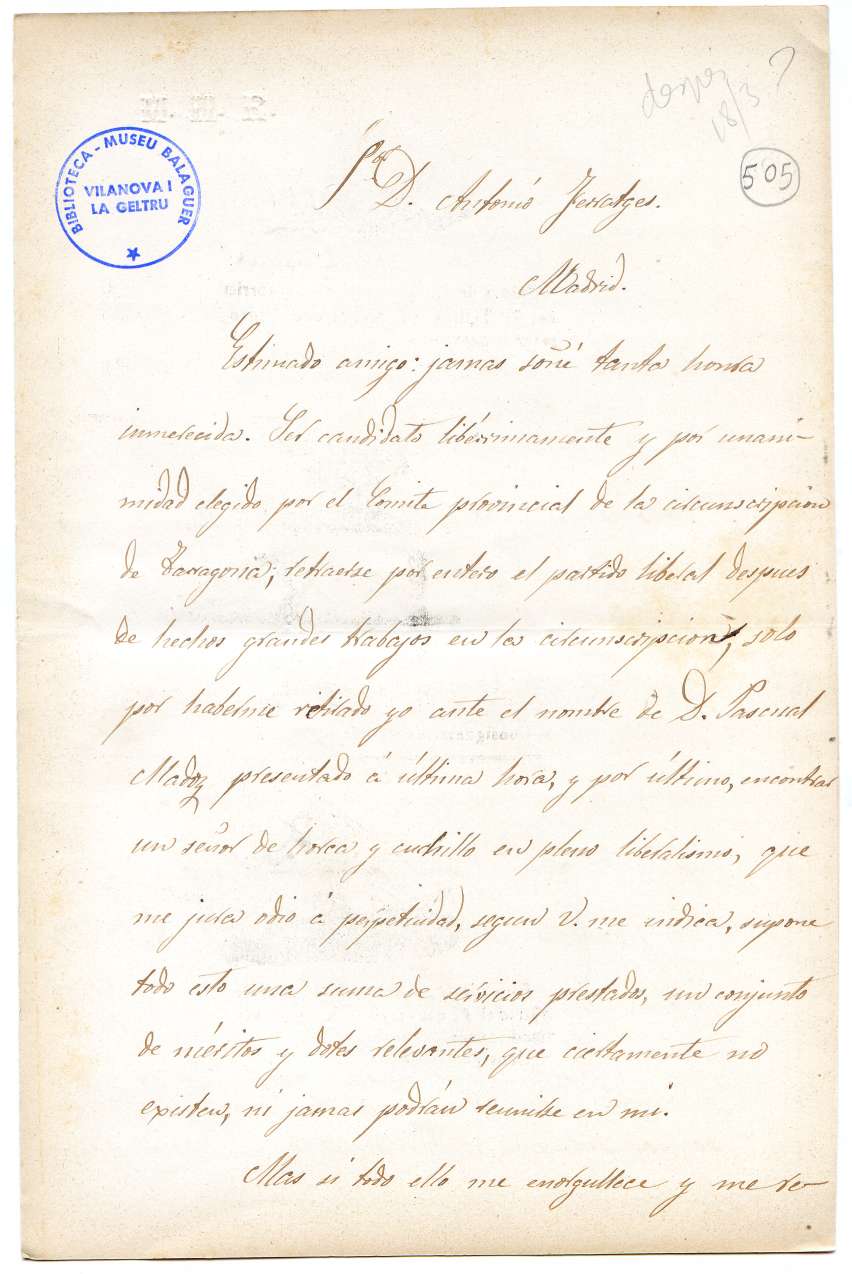 18/3
?
505
BIBLIOTECA - MUSEU BALAGUER
VILANOVA I
LA GELTRU
Sr. D. Antonió Ferratges.
Madrid.
Estimado amigo: jamas soñé tanta honra
inmerecida. Ser candidato libérrimamente y por unani-
midad elegido por el Comite provincial de la circunscripcion
de Tarragona; retraerse por entero el partido liberal despues
de hechos grandes trabajos en la circunscripcion, solo
por haberme retirado yo ante el nombre de D. Pascual
Madoz presentado á última hora, y por último, encontrar
un señor de horca y cuchillo en pleno liberalismo, que
me jura odio á perpetuidad, segun V. me indica, supone
todo esto una suma de servicios prestados, un conjunto
de méritos y dotes relevantes, que ciertamente no
existen, ni jamas podrán reunirse en mi.
Mas si todo ello me enorgullece y me re-